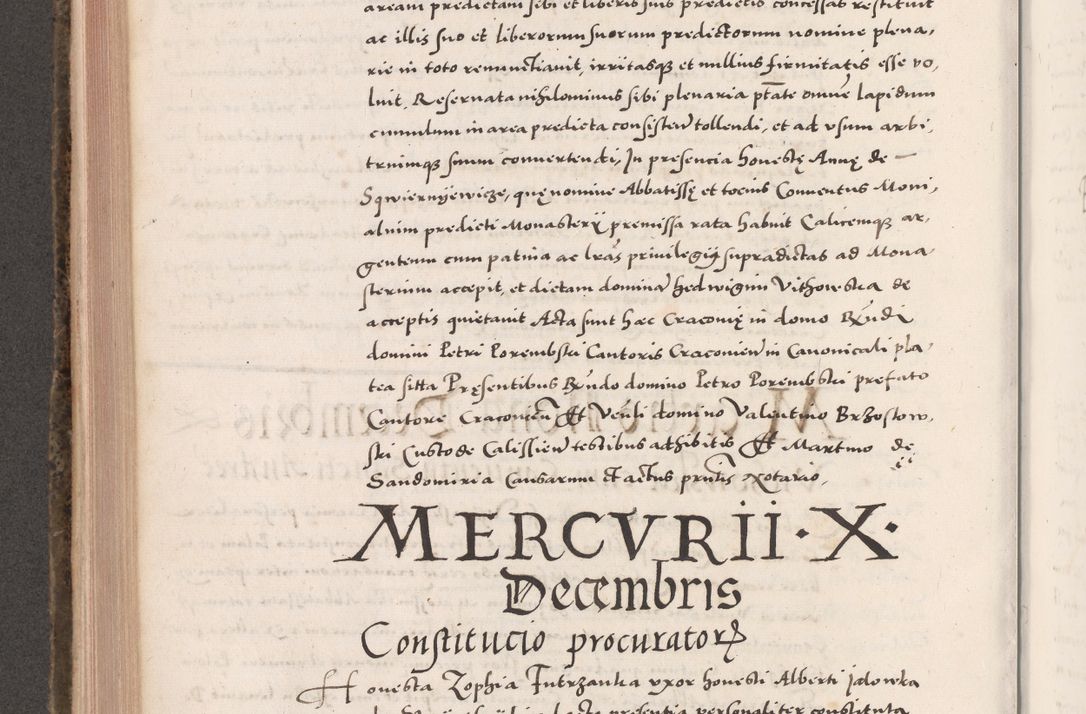 aream predictam sibi et liberis suis predictis concessas restituit
ac illis suo et liberorum suorum predictorum nomine plena,
rie in toto renunctiavit, irritasq3 et nullius firmitatis esse vo,
luit, Reservata nihilominus sibi plenaria ptāte omnē lapidum
cumulum in area predicta consisten̄ tollendi, et ad vsum arbi,
triumq3 suum convertendi, In presencia honestę Annę de —
Sqwiernyewicze, quę nomine Abbatissę et tocius Conventus Moni,
alium predicti Monasterÿ premissa rata habuit Calicemq3 ar,
genteum cum patina ac lrās privilegÿq3 supradictas ad Mona
sterium accepit, et dictam dominā hedwigim Vithowska de
acceptis quietavit Acta sunt hæc Cracovię in domo Rn̄di
domini Petri Porembski Cantoris Cracovien̄ in Canonicali pla,
tea sitta Pręsentibus Rn̄do domino Petro Porembski prefato
Cantore Cracovien̄ Et Ven̄li domino Valentino Brzostow,
ski Custode Calissien̄ testibus adhibitis Et Martino de
Sandomiria Causarum et actus pn̄tis Notario,
MERCVRII · X ·
Decembris
Constitucio procuratorꝝ
Honesta Zophia Tutrzanka vxor honesti Alberti Jalowka
personaliter constituta